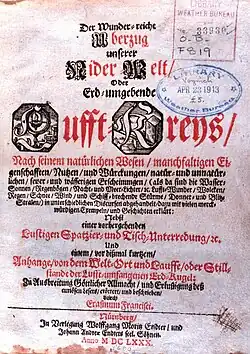 Der Wunder-reiche
Uberzug
unserer
Nider-Welt/
Oder
Erd-umgebende
Lufft-Kreys/
Nach seinem natürlichen Wesen/ manchfaltigen Ei-
genschafften/ Nutzen/ und Würckungen/ natür- und unnatür-
lichen/
Erscheinungen/ (als da sind die Wasser-
Sonnen/ Regenbögen/ Nacht- und
Wolcken/
Regen/ Schnee/ Wind/ und Schiff-brechende Stürme/ Donner- und Blitz-
Stralen/) in unterschiedlichen Discursen abgehandelt/ und mit vielen merck-
würdigen Exempeln/ und Geschichten erklärt:
Nebst
einer vorhergehenden
Lustigen Spatzier- und Tisch-Unterredung/ &c.
Und
einem/ vor dismal kurtzem/
Anhange/ von dem Welt-Ort und Lauffe/ oder Still-
stande der Lufft-umfangenen Erd-Kugel:
Zu Ausbreitung Göttlicher Allmacht/ und
erörtert/ und beschrieben/
durch
Erasmum Francisci.
Nürnberg/
In Verlegung Wolffgang Moritz Endter/ und
Johann Andreæ Endters sel. Söhnen.
Anno M DC LXXX.
WEATHER BUREAU
LIBRARY
APR 23 1913
Weather Bureau
F819